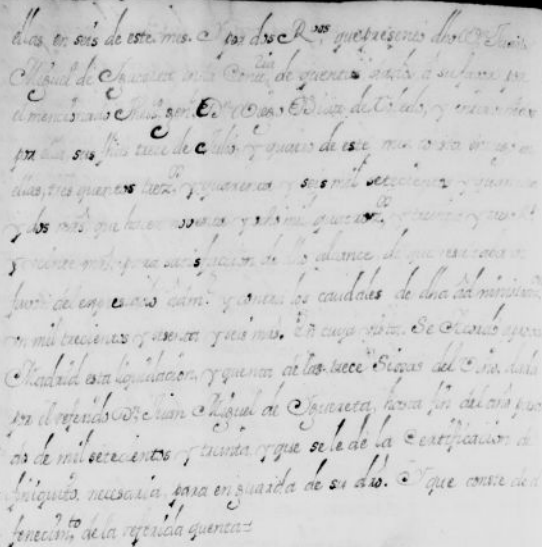 ellas, en seis de este mes. Y por dos R.vos que presento dho D.n Juan
Miguel de Ygurreta en la Cont.ria de quentas dados a su favor por
el mencionado Thes.ro gen.l D.n Diaz de Toledo, y
por ella sus fhas trece de Julio, y quatro de este mes consta
ellas, tres quentos trez.tos y quarenta y seis mil setecientos y quarenta
y dos mrs, que hacen noventa y ocho mil quatroz.tos y treinta y tres R.s
y veinte mrs, para satisfaccion de dho alcance de que
favor del expresado Adm.r y contra los caudales de dha Administraz.on
un mil trecientos y sesenta y seis mrs. En cuya vista. Se Acordo
Madrid esta liquidacion, y quenta de las trece Sisas del Vino, dada
por el referido D.n Juan Miguel de Ygurreta, hasta fin del año
do de mil setecientos y treinta, y que se le de la Certificacion de
finiquito, necesaria, para en guarda de su dro. Y que conste de el
fenecim.to de la referida quenta=